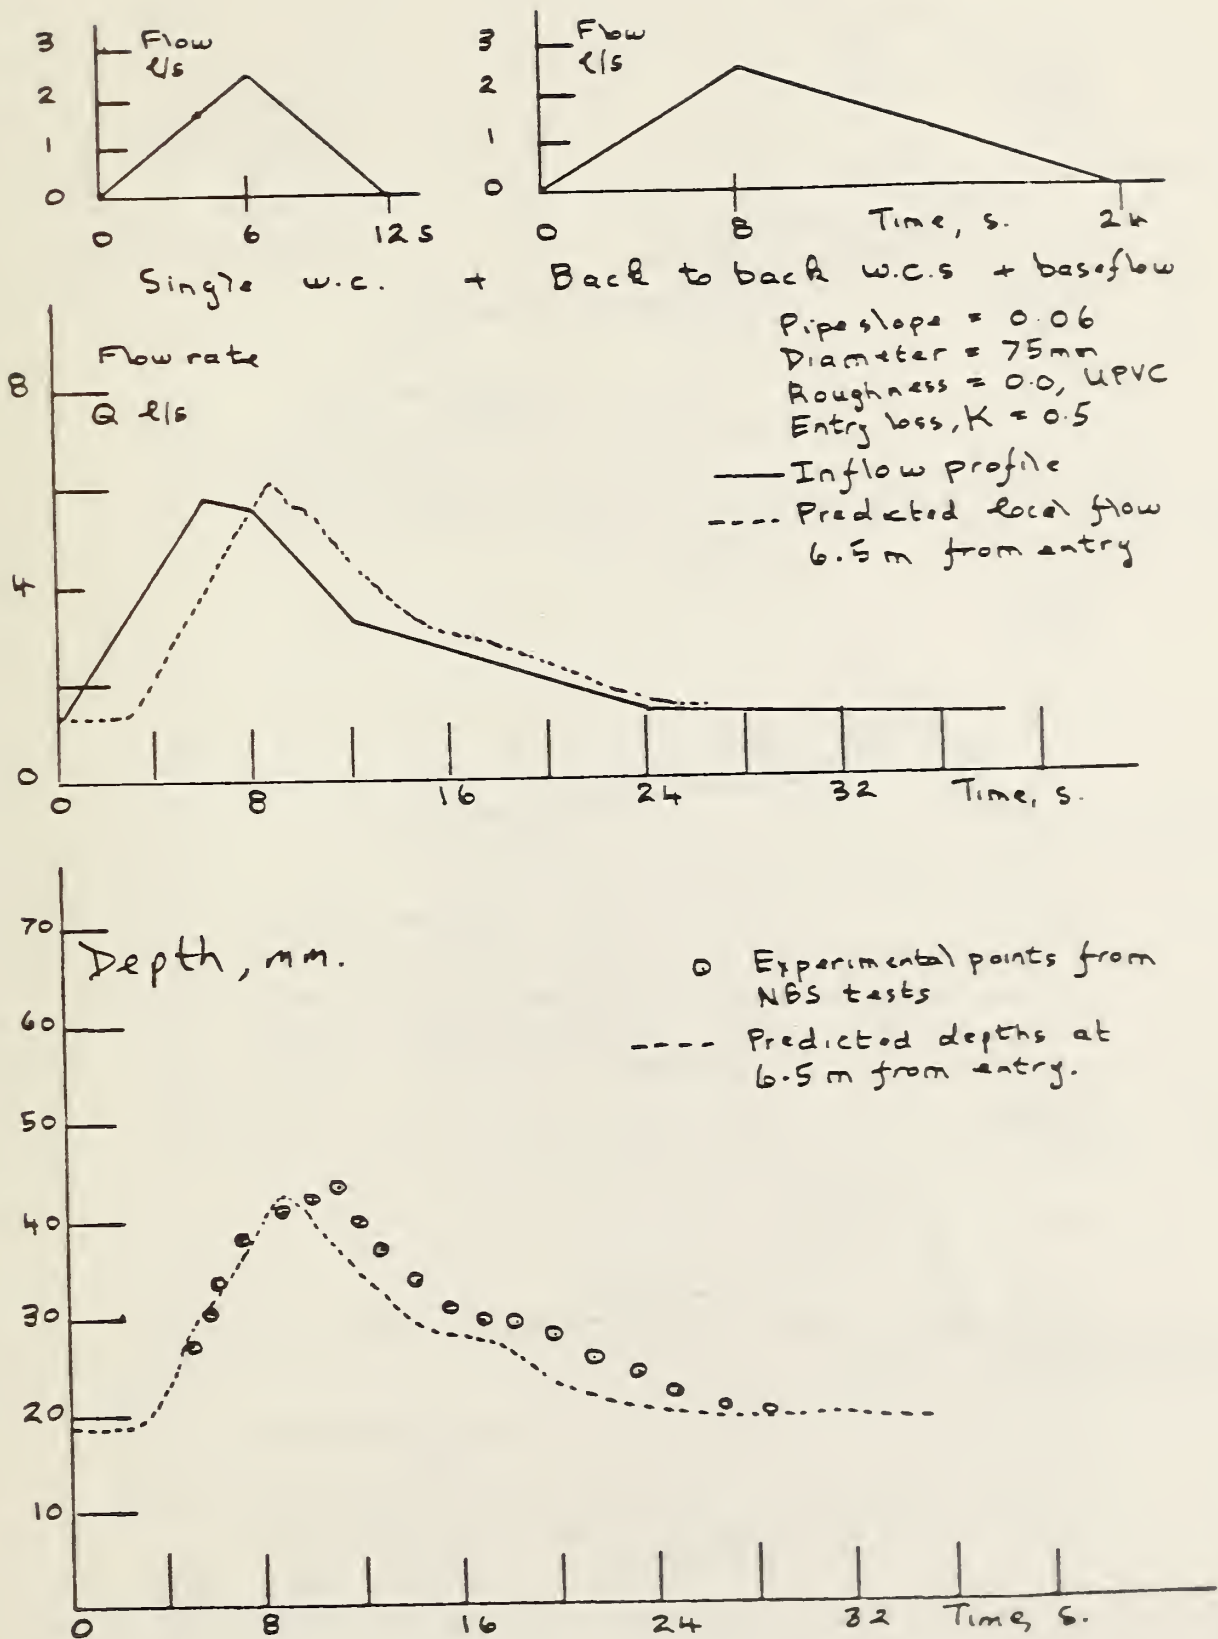 3
2
1
0
Flow
l/s
0 6 12 s
3
2
1
0
Flow
l/s
0 8 Time, s. 24
Single w.c. + Back to back w.c.s + baseflow
Pipe slope = 0.06
Diameter = 75mm
Roughness = 0.0, UPVC
Entry loss, K = 0.5
Inflow profile
Predicted local flow
6.5 m from entry
Flow rate
Q l/s
8
4
0
0 8 16 24 32 Time, s.
Depth, mm.
70
60
50
40
30
20
10
Experimental points from
NBS tests
Predicted depths at
6.5 m from entry.
0 8 16 24 32 Time, s.